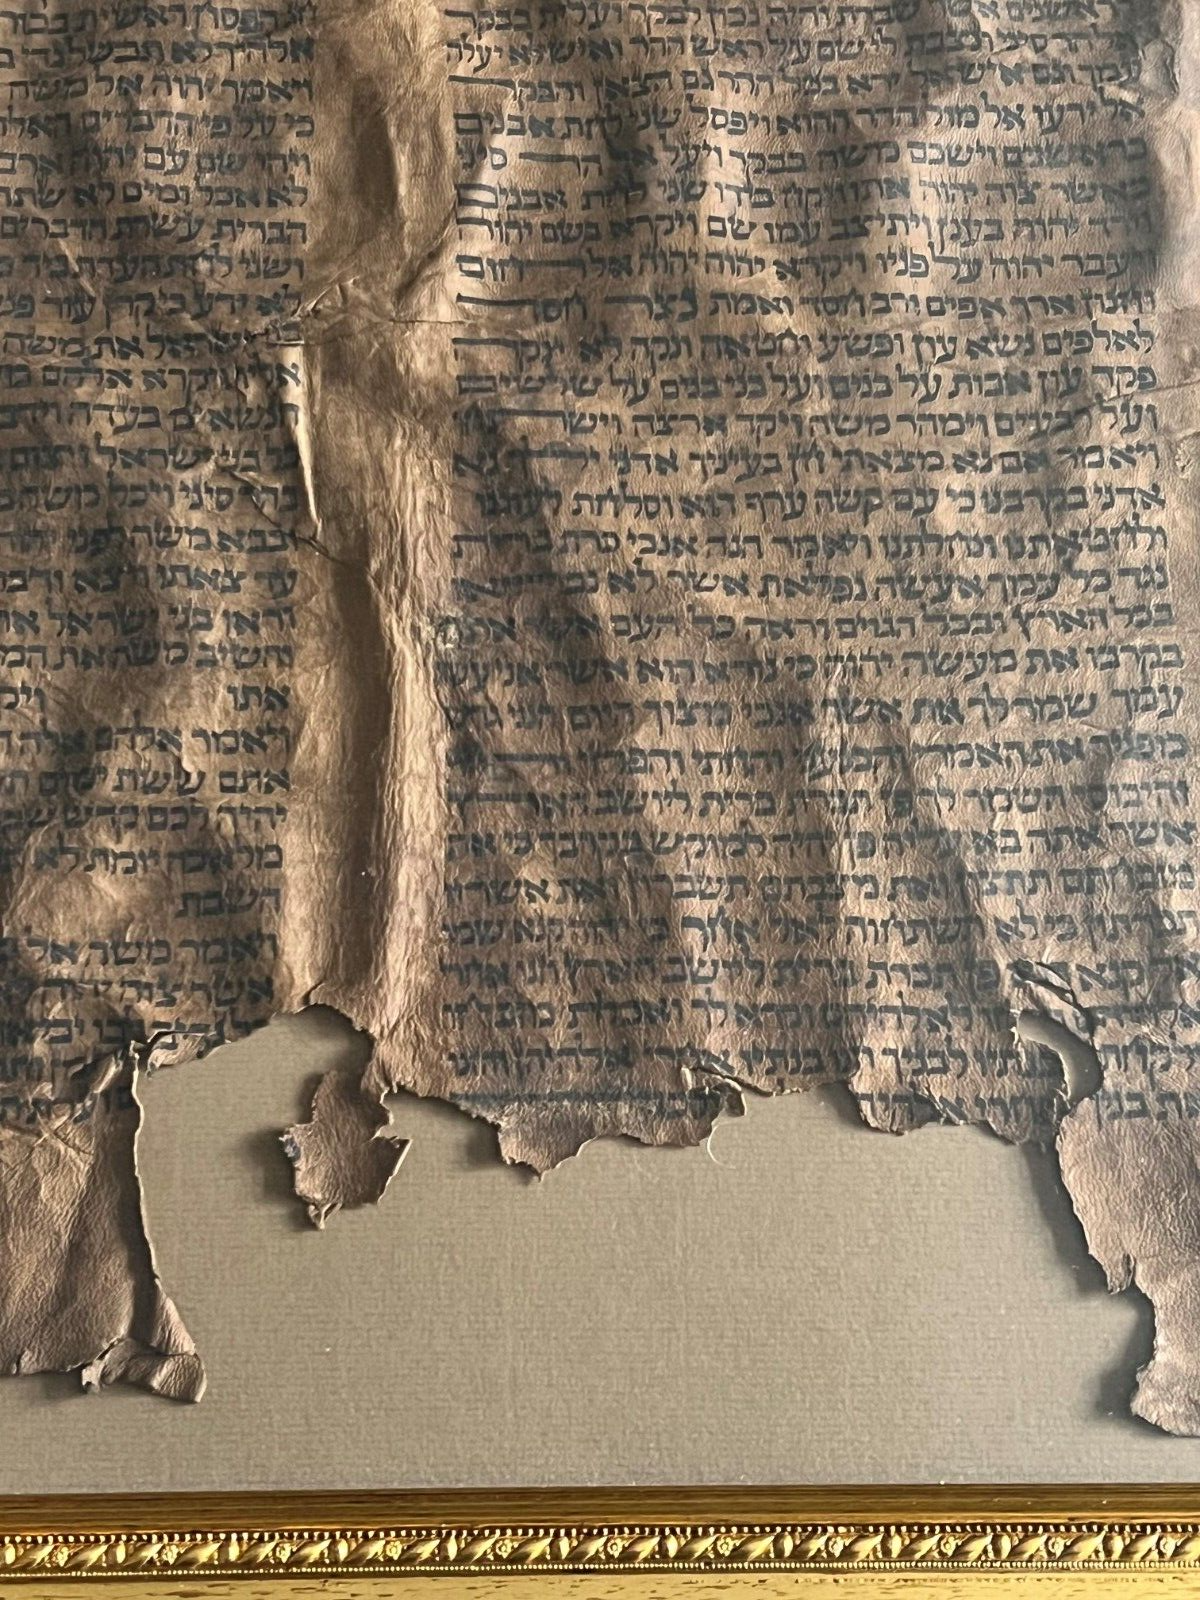 ראשנים אשר שברת והיה נכון לבקר ועלית בבקר
אל הר סיני ונצבת לי שם על ראש ההר ואיש לא יעלה
עמך וגם איש אל ירא בכל ההר גם הצאן והבקר
אל ירעו אל מול ההר ההוא ויפסל שני לחת אבנים
כראשנים וישכם משה בבקר ויעל אל הר סיני
כאשר צוה יהוה אתו ויקח בידו שני לחת אבנים
וירד יהוה בענן ויתיצב עמו שם ויקרא בשם יהוה
ויעבר יהוה על פניו ויקרא יהוה יהוה אל רחום
וחנון ארך אפים ורב חסד ואמת נצר חסד
לאלפים נשא עון ופשע וחטאה ונקה לא ינקה
פקד עון אבות על בנים ועל בני בנים על שלשים
ועל רבעים וימהר משה ויקד ארצה וישתחו
ויאמר אם נא מצאתי חן בעיניך אדני ילך נא
אדני בקרבנו כי עם קשה ערף הוא וסלחת לעוננו
ולחטאתנו ונחלתנו ויאמר הנה אנכי כרת ברית
נגד כל עמך אעשה נפלאת אשר לא נבראו
בכל הארץ ובכל הגוים וראה כל העם אשר אתה
בקרבו את מעשה יהוה כי נורא הוא אשר אני עשה
עמך שמר לך את אשר אנכי מצוך היום הנני גרש
מפניך את האמרי והכנעני והחתי והפרזי והחוי
והיבוסי השמר לך פן תכרת ברית ליושב הארץ
אשר אתה בא עליה פן יהיה למוקש בקרבך כי את
מזבחתם תתצון ואת מצבתם תשברון ואת אשריו
תכרתון כי לא תשתחוה לאל אחר כי יהוה קנא שמו
אל קנא פן תכרת ברית ליושב הארץ וזנו אחרי
לאלהיהם וקרא לך ואכלת מזבחו
ולקחת מבנתיו לבניך וזנו בנתיו אחרי אלהיהן והזנו
את בניך אחרי
חג הפסח ראשית בכורי
אלהיך לא תבשל גדי
ויאמר יהוה אל משה
כי על פי הדברים האלה
ויהי שם עם יהוה ארב
לא אכל ומים לא שתה
הברית עשרת הדברים
ושני לחת העדת ביד
לא ידע כי קרן עור פני
ישראל את משה
אליו ויקרא אלהם מש
הנשאים בעדה וידב
כל בני ישראל ויצום
בהר סיני ויכל משה מ
ובבא משה לפני יהוה
עד צאתו ויצא ודבר
וראו בני ישראל את
והשיב משה את המ
אתו ויק
ויאמר אלהם אלה ה
אתם ששת ימים ת
יהיה לכם קדש ש
מלאכה יומת לא
השבת
ויאמר משה אל
אשר צוה יהוה